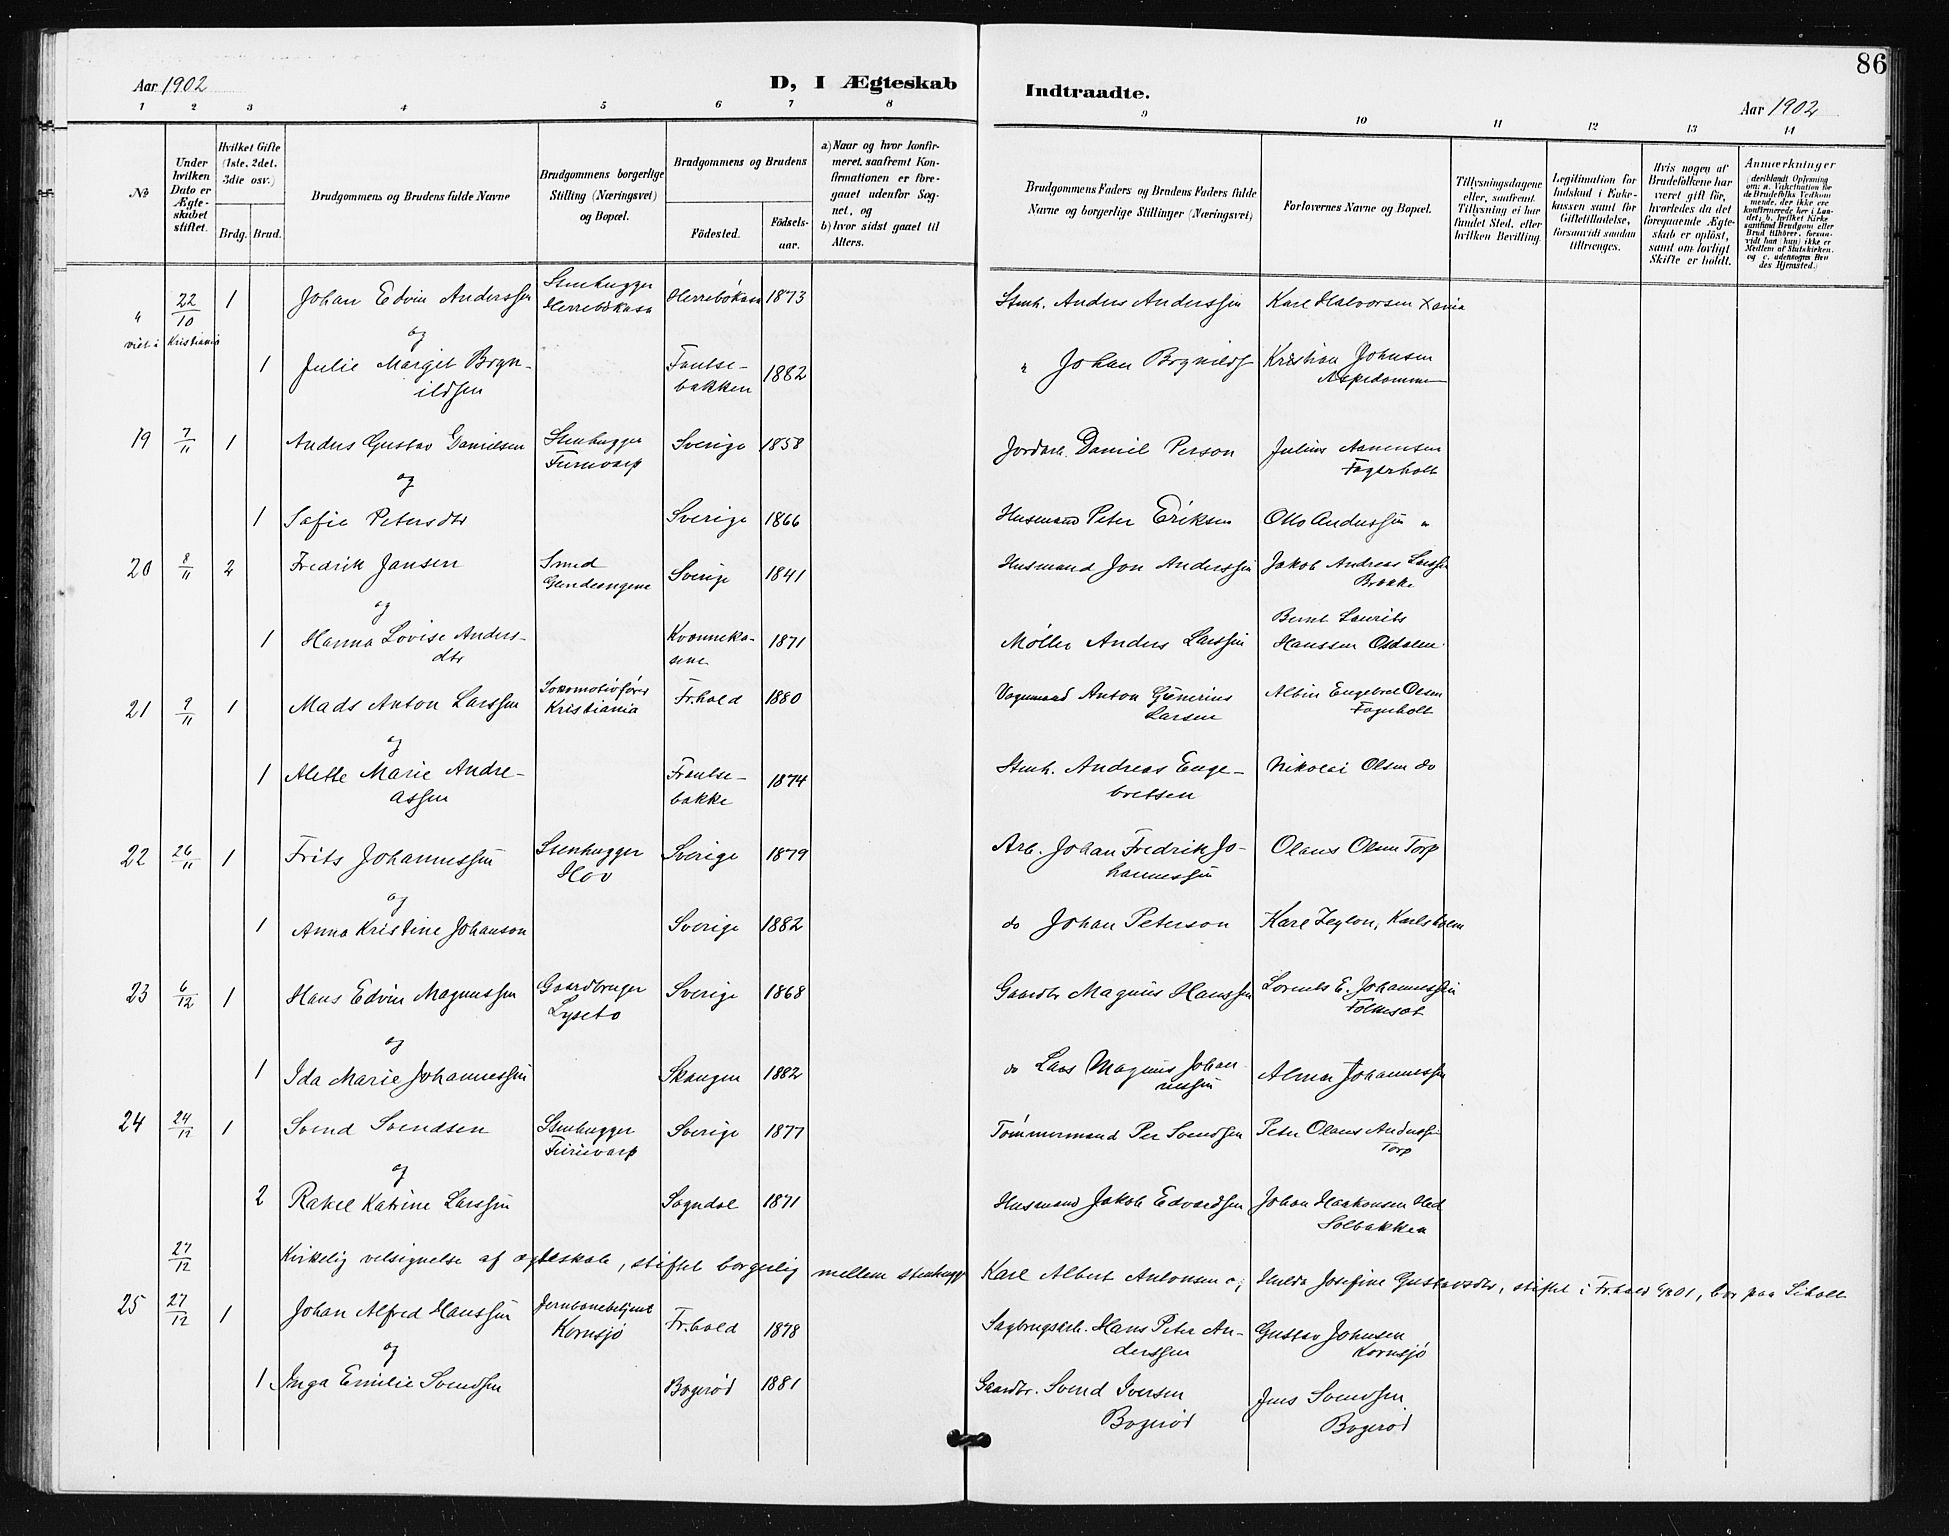 86
Aar 1902
D, I Ægteskab
Indtraadte.
Aar 1902
1 2 3 4 5 6 7 8 9 10 11 12 13 14
No
Under hvilken Dato er Ægteskabet stiftet.
Hvilket Gifte (1ste, 2det, 3die osv.)
Brdg. Brud.
Brudgommens og Brudens fulde Navne
Brudgommens borgerlige Stilling (Næringsvei) og Bopœl.
Brudgommens og Brudens
Födested.
Födsels-aar.
a) Naar og hvor konfirmeret, saafremt Konfirmationen er foregaaet udenfor Sognet, og
b) hvor sidst gaaet til Alters.
Brudgommens Faders og Brudens Faders fulde Navne og borgerlige Stillinger (Næringsvei)
Forlovernes Navne og Bopœl.
Tillysningsdagene eller, saafremt Tillysning ei har fundet Sted, efter hvilken Bevilling.
Legitimation for Indskud i Enkekassen samt for Giftetilladelse, forsaavidt saadan tiltrœnges.
Hvis nogen af Brudefolkene har vœret gift för, hvorledes da det foregaaende Ægteskab er oplöst, samt om lovligt Skifte er holdt.
Anmœrkninger
" 22/10 1 Johan Edvin Anderssen Stenhugger Herrebökasa Herrebökasa 1873 Stenh. Anders Anderssen Karl Halvorsen Xania
viet i Kristiania
og
1 Julie Margit Brynildsen Fantebakken 1882 " Johan Brynilds Kristian Johnsen Aspedammen
19 7/11 1 Anders Gustav Danielsen Stenhugger Sverige 1858 Jordarb. Daniel Person Julius Fagerholt
og
1 Sofie Petersdtr Sverige 1866 Husmand Peter Eriksen Otto Anderssen "
20 8/11 2 Fredrik Jansen Smed Sverige 1841 Husmand Jon Anderssen Jakob Andreas Larssen Brække
og
1 Hanna Lovise Andersdtr 1871 Møller Anders Larssen Bernt Laurits Hanssen
21 9/11 1 Mads Anton Larssen Lokomotivfører Kristiania Fr.hald 1880 Vognmand Anton Gunerius Larsen Albin Engebret Olsen Fagerholt
og
1 Alette Marie Andreassen 1874 Stenh. Andreas Engebretsen Nikolai Olsen do
22 26/11 1 Frits Johannessen Stenhugger Hov Sverige 1879 Arb. Johan Fredrik Johannessen Olaus Olsen Torp
og
1 Anna Kristine Johanson Sverige 1882 do Johan Peterson Karl Zeylon, Karlsholm
23 6/12 1 Hans Edvin Magnussen Gaardbruger Lyseto Sverige 1868 Gaardbr Magnus Hanssen Lorents E. Johannessen Folkesæt
og
1 Ida Marie Johannessen Skaugen 1882 do Lars Magnus Johannessen Johannessen
24 24/12 1 Svend Svendsen Stenhugger Sverige 1877 Tömmermand Per Svendsen Peter Olaus Anderss. Torp
og
2 Rakel Katrine Larssen Sogndal 1871 Husmand Jakob Edvardsen Johan Haakonsen Solbakken
27/12 Kirkelig velsignelse af ægteskab, stiftet borgerlig mellem stenhugg. Karl Albert Antonsen og Hulda Josefine Gustavsdtr, stiftet i Fr.hald 1901, bor paa
25 27/12 1 Johan Alfred Hanssen Jernbanebetjent Kornsjø Fr.hald 1878 Sagbrugsarb. Hans Peter Anderssen Gustav Johnsen Kornsjö
og
1 Inga Emilie Svendsen Bøgeröd 1881 Gaardbr. Svend Iversen Bøgeröd Jens Svendsen Bøgeröd